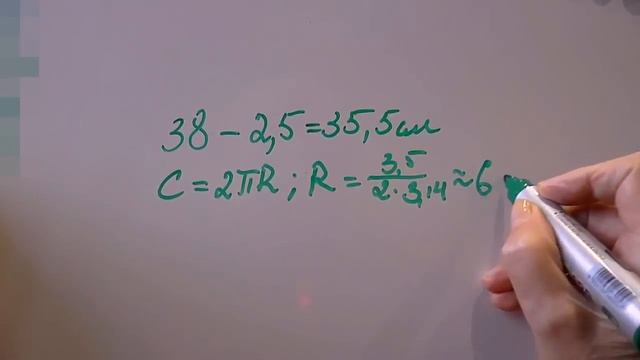 38 - 2,5 = 35,5 см
C = 2πR ; R = 3,5 / 2·3,14 ≈ 6